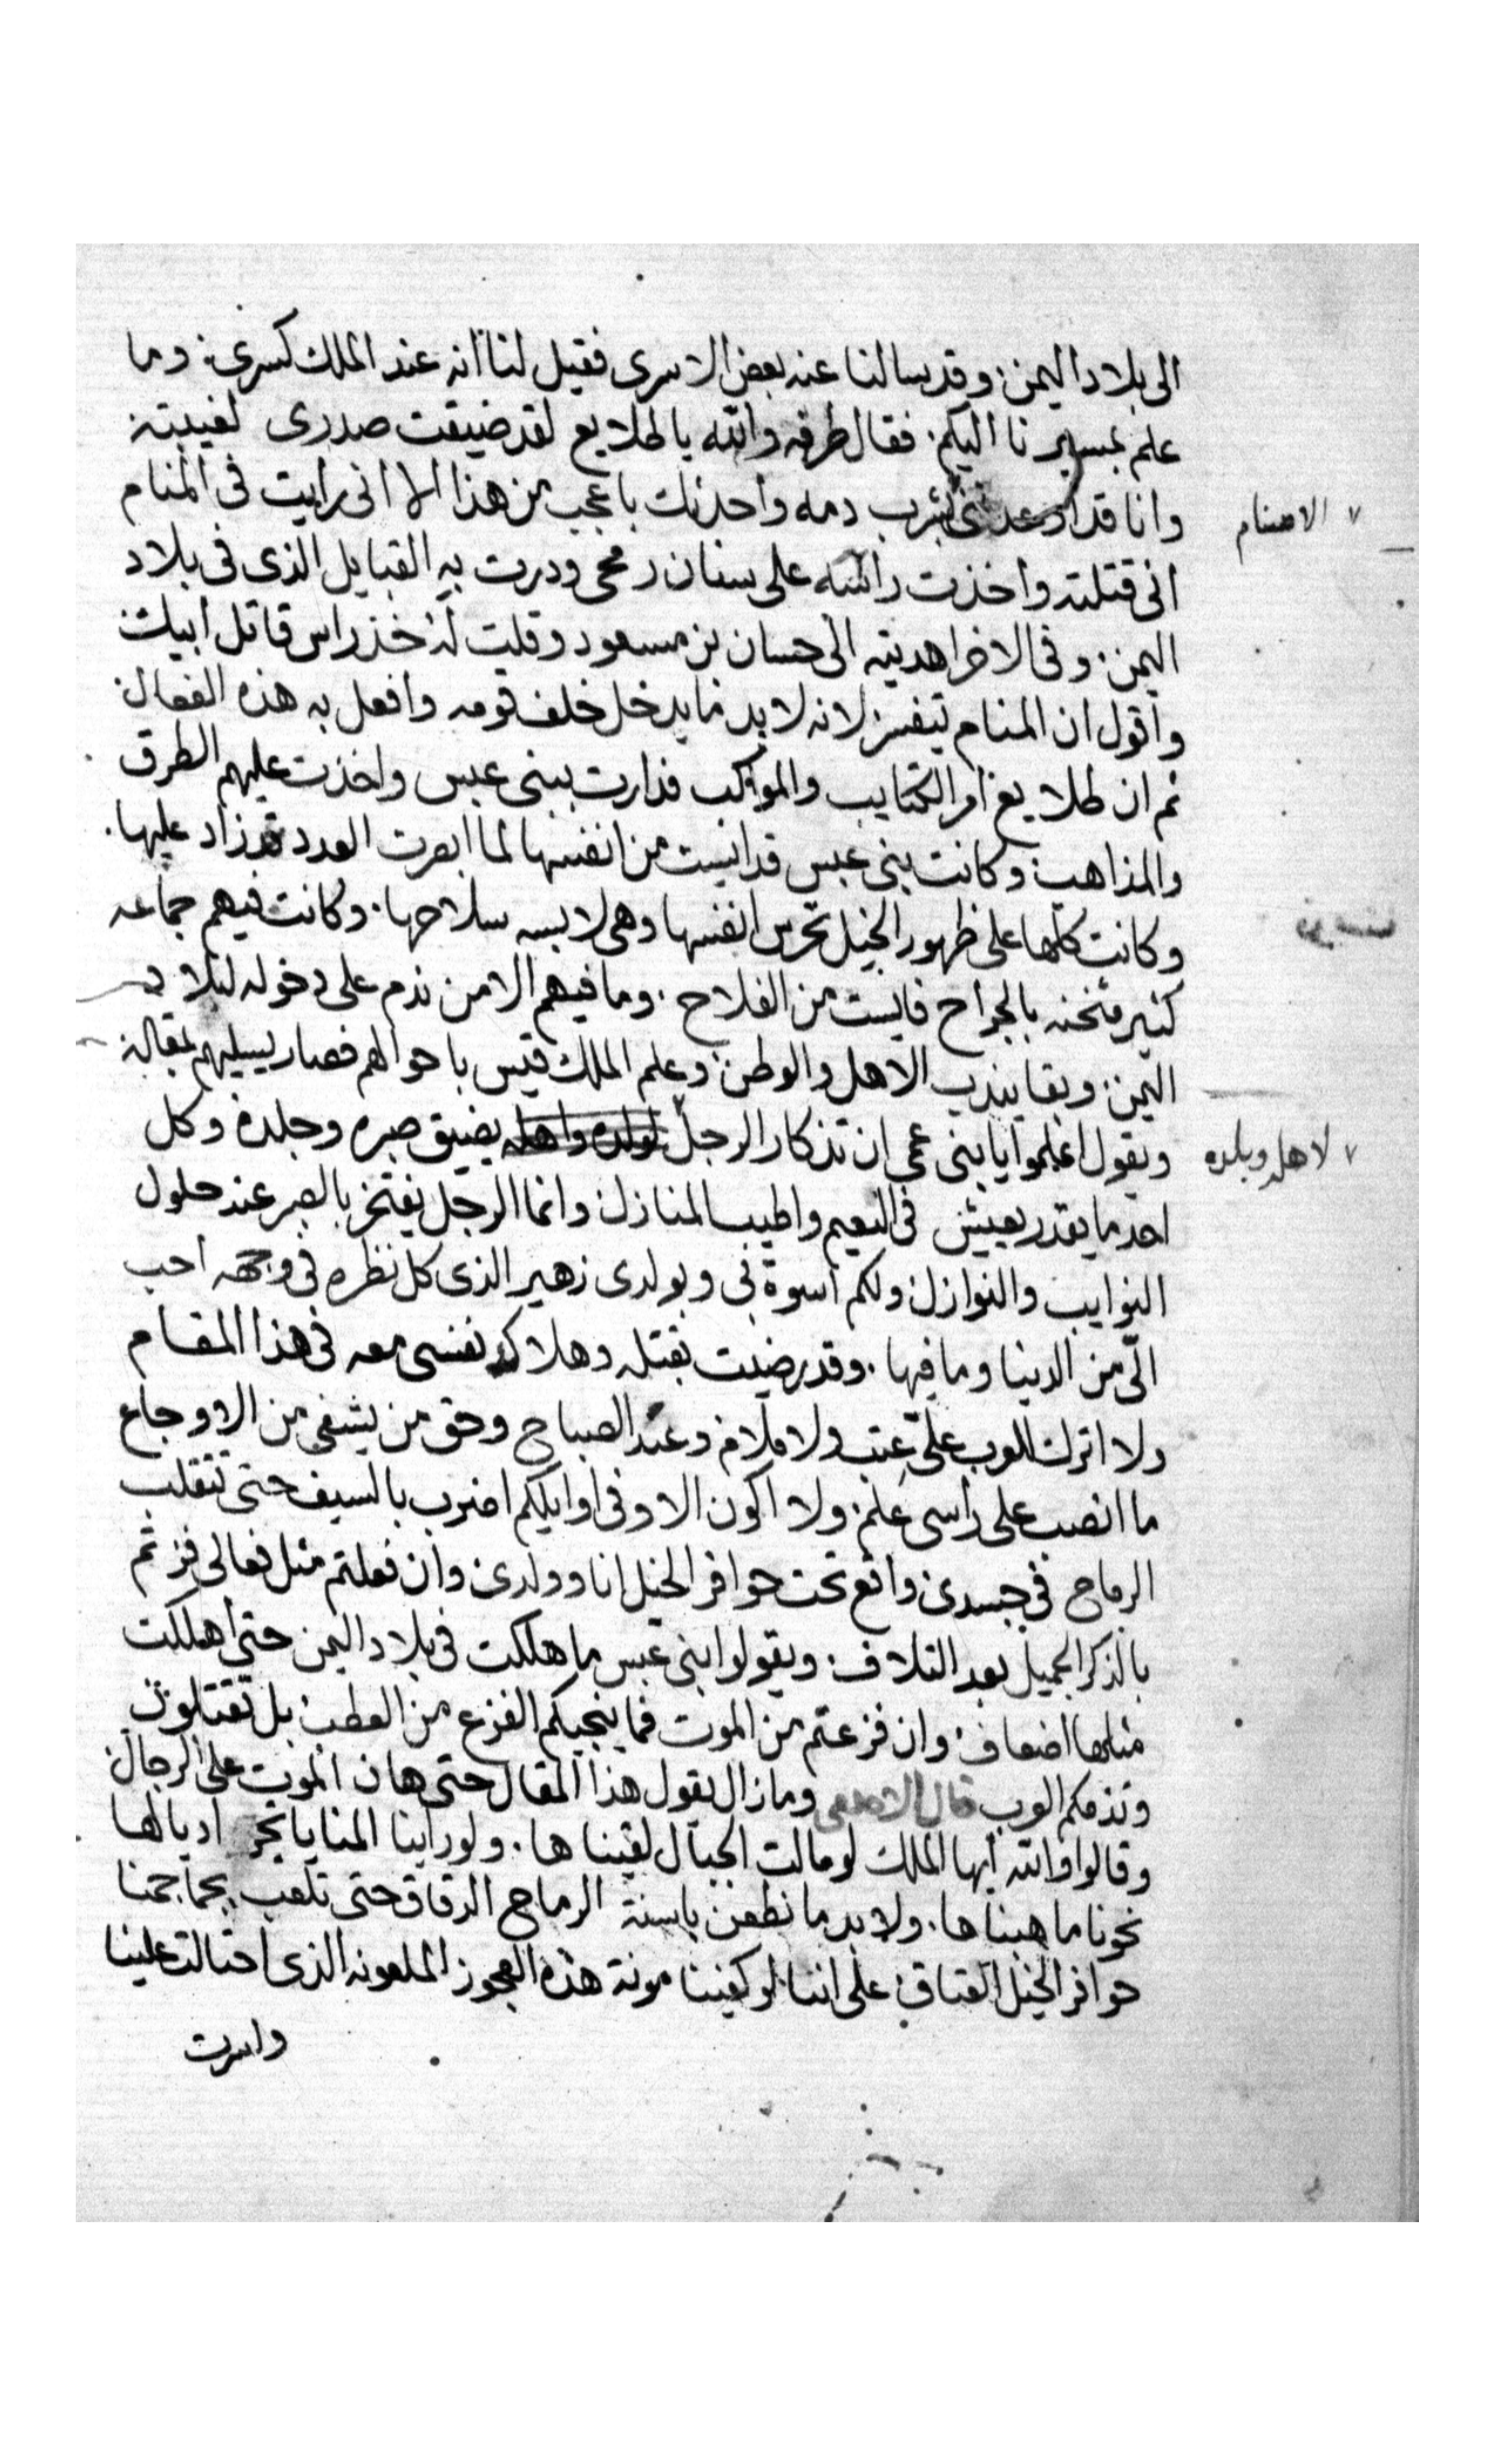 الى بلاد اليمن وقد سالنا عنه بعض الاسرى فقيل لنا انه عند الملك كسرى وما
علم بمسيرنا اليكم فقال طرفه والله يا طلايع لقد ضيقت صدرى لغيبته
الاصنام
وانا قد اوعدنى بشرب دمه واحدثك باعجب من هذا الا انى رايت فى المنام
انى قتلته واخذت راسه على سنان رمحى ودرت به القبايل الذى فى بلاد
اليمن وفى الاخر اهديته الى حسان بن مسعود وقلت له خذ راس قاتل ابيك
واقول ان المنام تيفسر لانه لا بد ما يدخل خلف قومه وافعل به هذه الفعال
ثم ان طلايع امر الكتايب والمواكب فدارت ببنى عبس واخذت عليهم الطرق
والمذاهب وكانت بنى عبس قد ايست من انفسها لما ابصرت العدد قد زاد عليها
وكانت كلها على ظهور الخيل تحرس انفسها وهى لابسه سلاحها وكانت فيهم جماعه
كثير مثخنه بالجراح فايست من الفلاح وما فيهم الا من ندم على دخوله لبلاد
اليمن وبقا يندب الاهل والوطن وعلم الملك قيس باحوالهم فصار يسيليهم بمقاله
لاهله وبلده
ويقول اعلموا يا بنى عمى ان تذكار الرجل لولده واهله يضيق صبره وجلده وكل
احد ما يقدر يعيش فى النعيم واطيب المنازل وانما الرجل يفتخر بالصبر عند حلول
النوايب والنوازل ولكم اسوة بى وبولدى زهير الذى كل نظره فى وجهه احب
الّى من الدينا وما فيها وقد رضيت بقتله وهلاك نفسى معه فى هذا المقام
ولا اترك للعرب علىّ عتب ولا ملام وعند الصباح وحق من يشفى من الاوجاع
ما انصب على راسى علم ولا اكون الا وفى اوايلكم اضرب بالسيف حتى تنقلب
الرماح فى جسدى واقع تحت حوافر الخيل انا وولدى وان فعلتم مثل فعالى فزتم
بالذكر الجميل بعد التلاف ويقولوا بنى عبس ما هلكت فى بلاد اليمن حتى اهلكت
مثلها اضعاف وان فزعتم من الموت فما ينجيكم الفزع من العطب بل تقتلون
وتذمكم العرب قال الاصمعى وما زال يقول هذا المقال حتى هان الموت على الرجال
وقالوا والله ايها الملك لو مالت الجبال لقيناها ولو راينا المنايا تجر اديالها
نحونا ما هبناها ولا بد ما نطعن باسنة الرماح الدقاق حتى تلعب بجماجمنا
حوافر الخيل العتاق على اننا لو كفينا مونة هذه العجوز الملعونه الذى احتالت علينا
واسرت